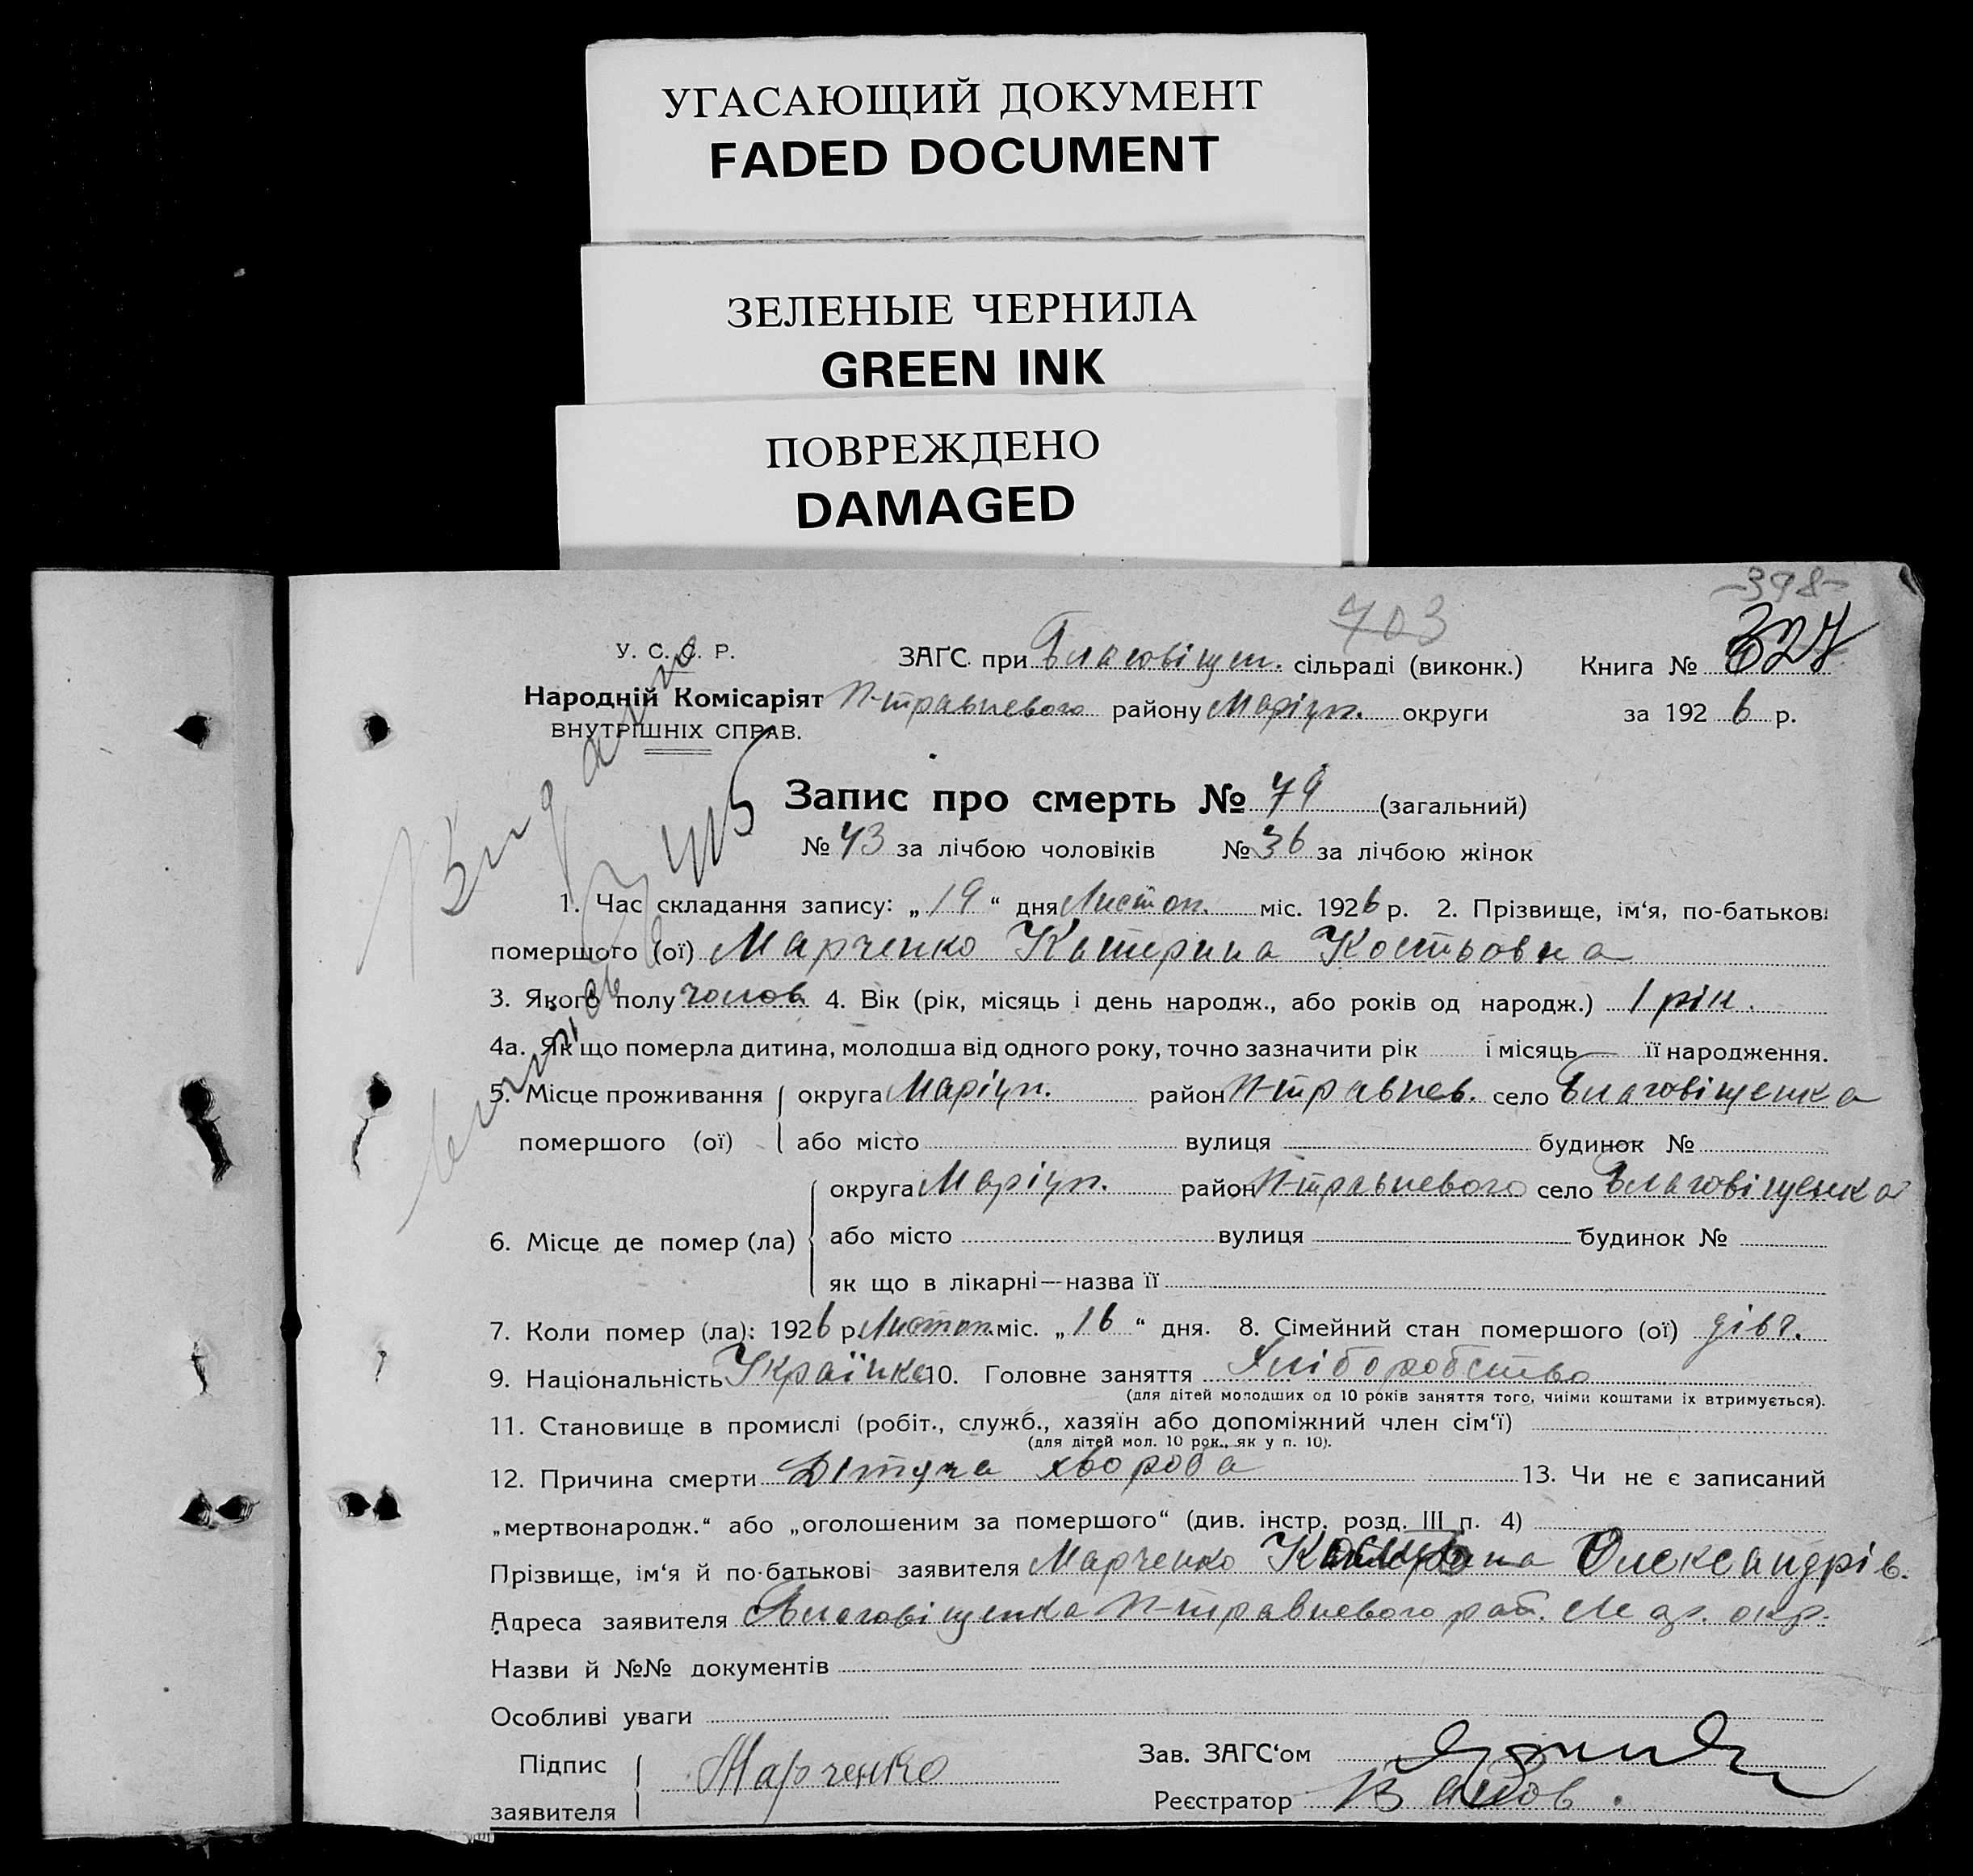 УГАСАЮЩИЙ ДОКУМЕНТ
FADED DOCUMENT
ЗЕЛЕНЫЕ ЧЕРНИЛА
GREEN INK
ПОВРЕЖДЕНО
DAMAGED
-398-
403
У. С. С. Р. ЗАҐС при Благовіщен. сільраді (виконк.) Книга № 327
Народній Комісаріят П-травневого району Маріуп. округи за 1926 р.
ВНУТРІШНІХ СПРАВ.
Запис про смерть № 79 (загальний)
№ 43 за лічбою чоловіків № 36 за лічбою жінок
1. Час складання запису: „19“ дня Листоп. міс. 1926 р. 2. Прізвище, ім‘я, по-батькові
помершого (ої) Марченко Катерина Костьовна
3. Якого полу чолов. 4. Вік (рік, місяць і день народж., або років од народж.) 1 рік.
4а. Як що померла дитина, молодша від одного року, точно зазначити рік і місяць — її народження.
5. Місце проживання округа Маріуп. район П-травнев. село Благовіщенка
помершого (ої) або місто вулиця будинок №
округа Маріуп. район П-травневого село Благовіщенка
6. Місце де помер (ла) або місто вулиця будинок №
як що в лікарні—назва її
7. Коли помер (ла): 1926 р. Листоп. міс. „16“ дня. 8. Сімейний стан помершого (ої) дівч.
9. Національність Українка 10. Головне заняття Хліборобство
(для дітей молодших од 10 років заняття того, чиїми коштами їх втримується).
11. Становище в промислі (робіт., служб., хазяїн або допоміжний член сім‘ї)
(для дітей мол. 10 рок., як у п. 10).
12. Причина смерти Дітяча хвороба 13. Чи не є записаний
„мертвонародж.“ або „оголошеним за помершого“ (див. інстр. розд. III п. 4)
Прізвище, ім‘я й по-батькові заявителя Марченко Олександрів.
Адреса заявителя Благовіщенка П-травневого рай. Мар. окр.
Назви й №№ документів
Особливі уваги
Підпис Марченко Зав. ЗАГС‘ом
заявителя Реєстратор